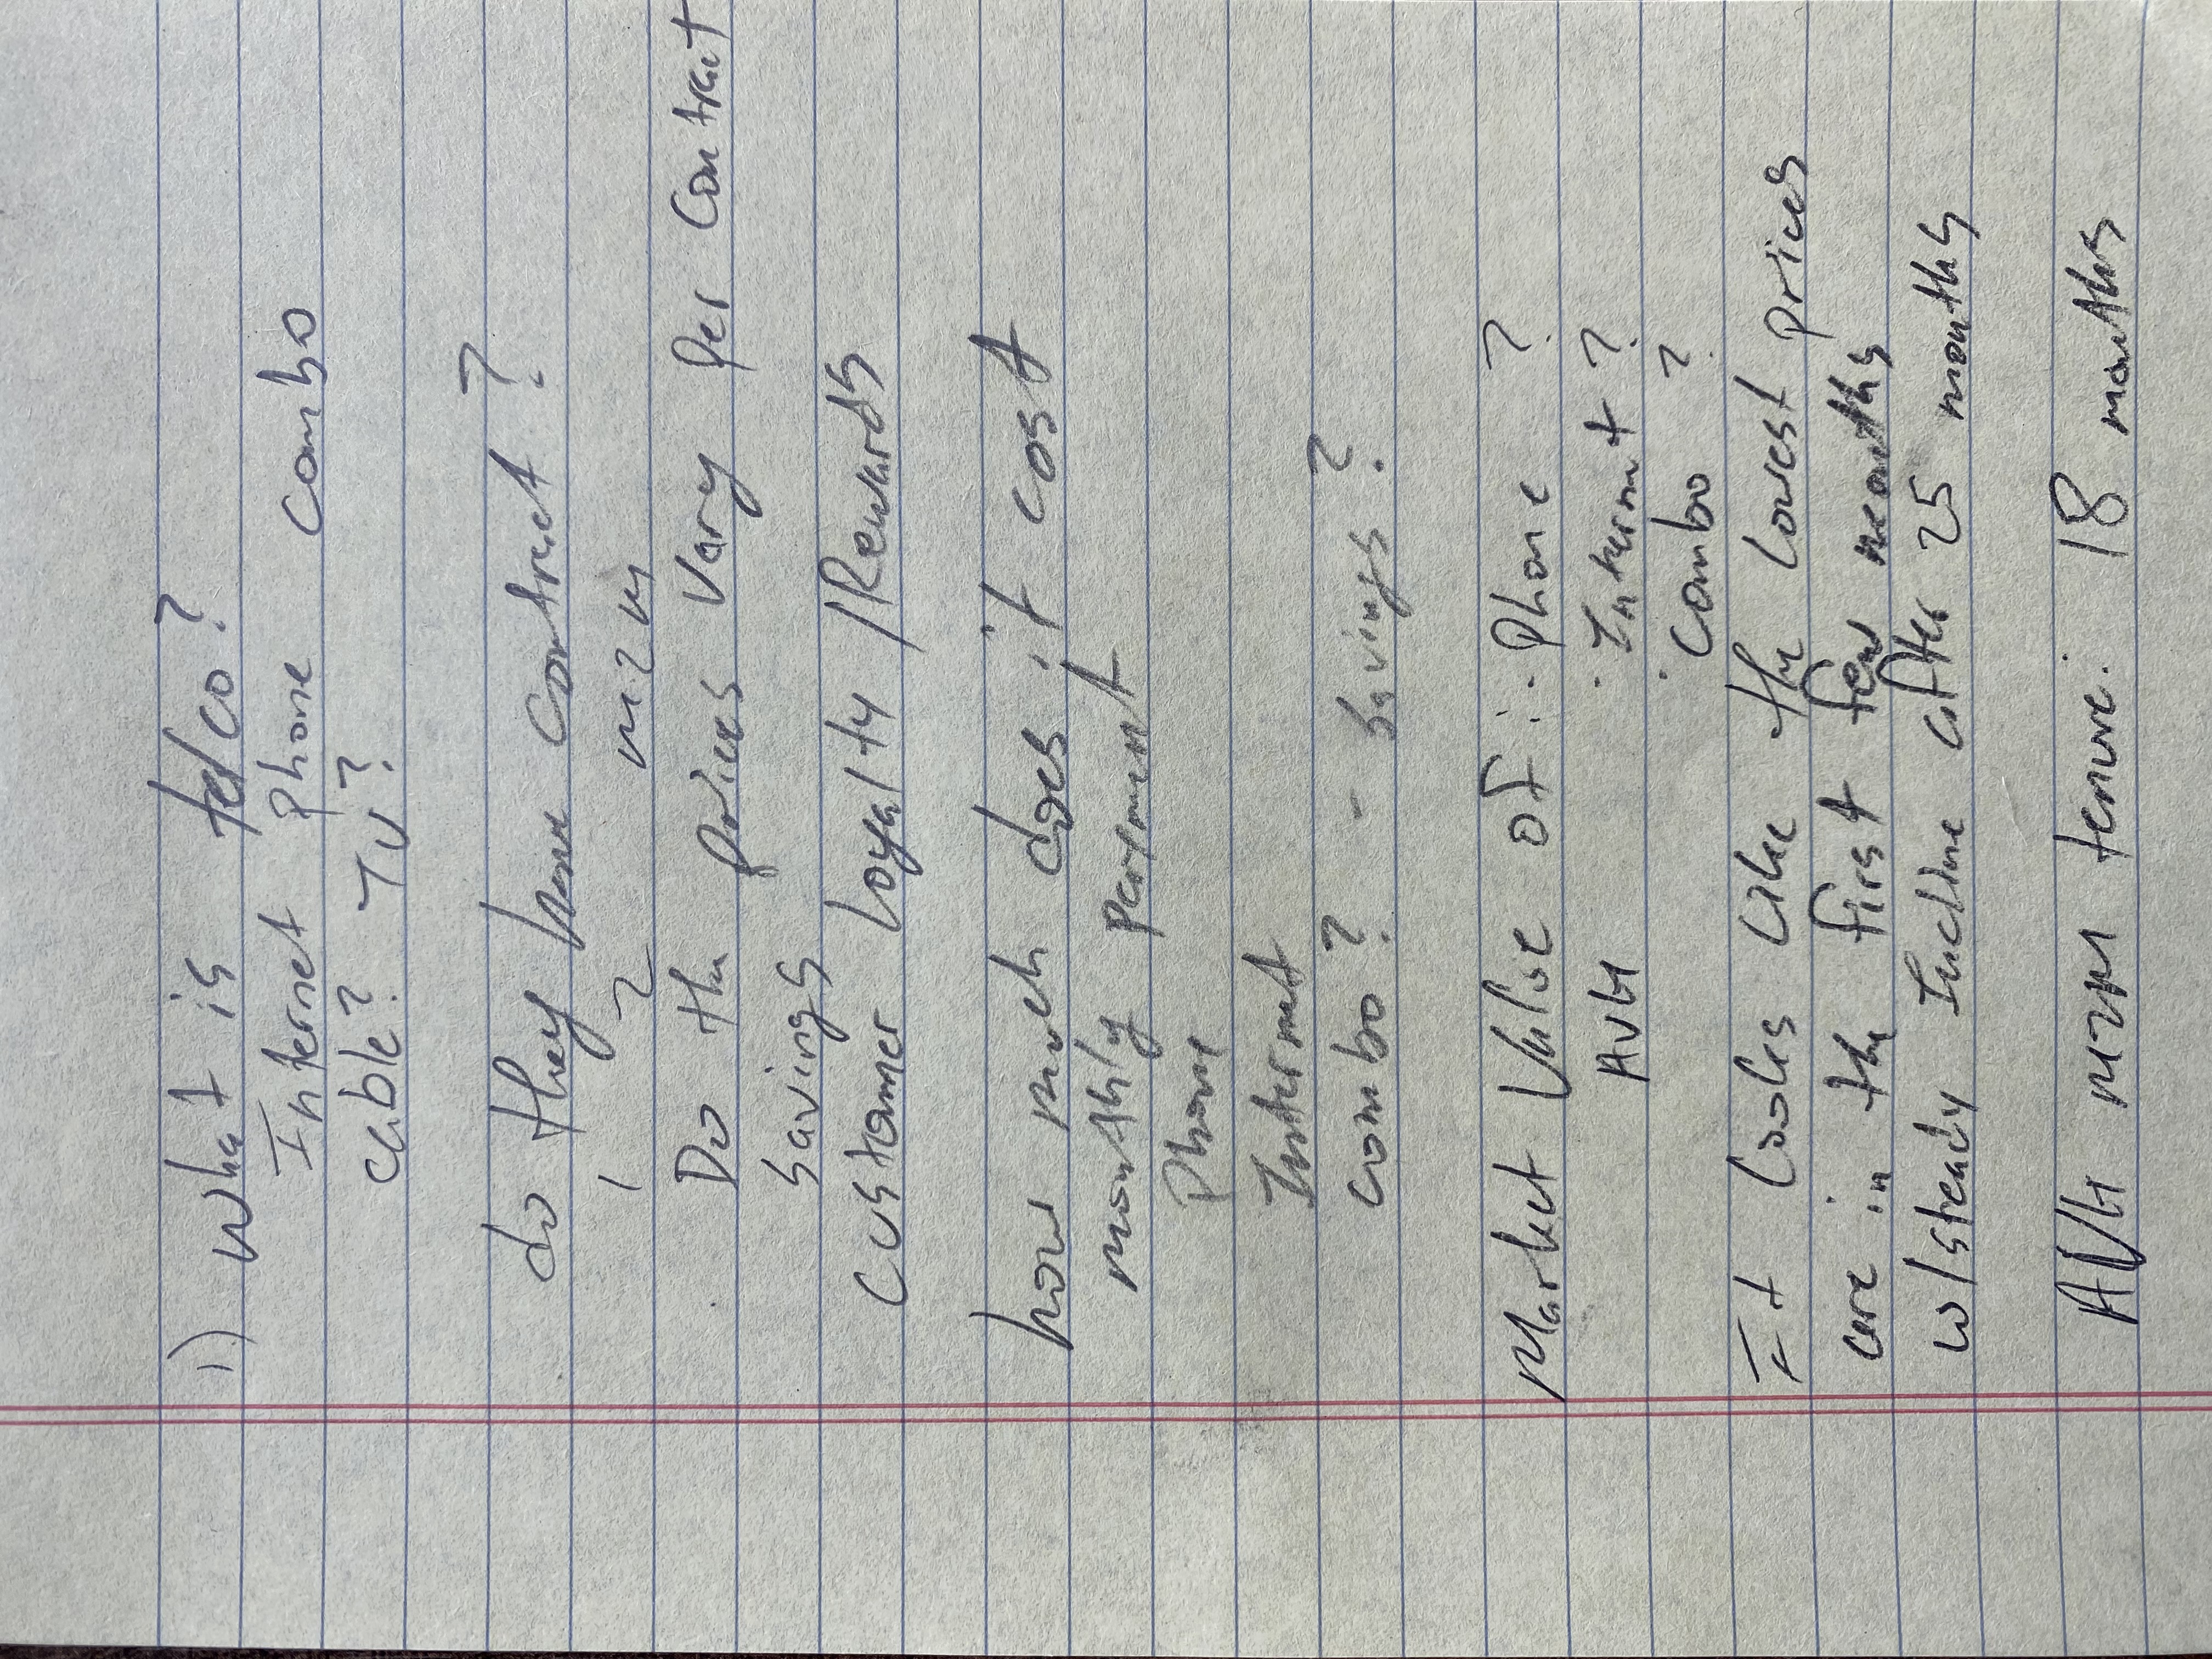 1.) What is telco?
Internet phone combo
cable? TV?
do they have contract?
1 2 m2m
Do the prices vary per contract
savings
customer loyalty /Rewards
how much does it cost
monthly payment
Phone
Internet
combo? - savings?
Market Value of: · Phone ?
AVG · Internet ?
· combo ?
It looks like the lowest prices
are in the first few months
w/steady Incline after 25 months
AVG M2M tenure: 18 months